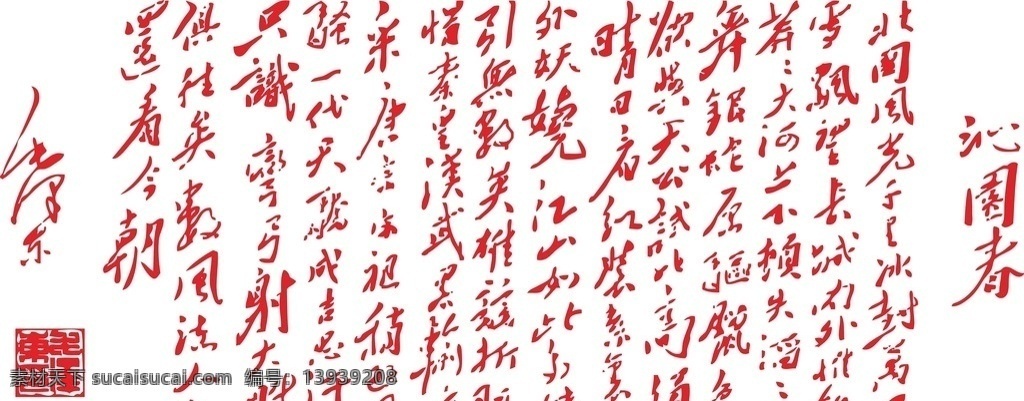 沁園春
北國風光千里冰封萬
雪飄望長城內外惟
莽〻大河上下頓失滔〻
舞銀蛇原驅臘
欲與天公試比高須
晴日看紅裝素裹
外妖嬈江山如此多
引無數英雄競折
惜秦皇漢武略輸
采〻唐宗宋祖稍
騷一代天驕成吉思汗
只識彎弓射大
俱往矣數風流人
還看今朝
毛澤東
素材天下 sucaisucai.com 编号：13939208